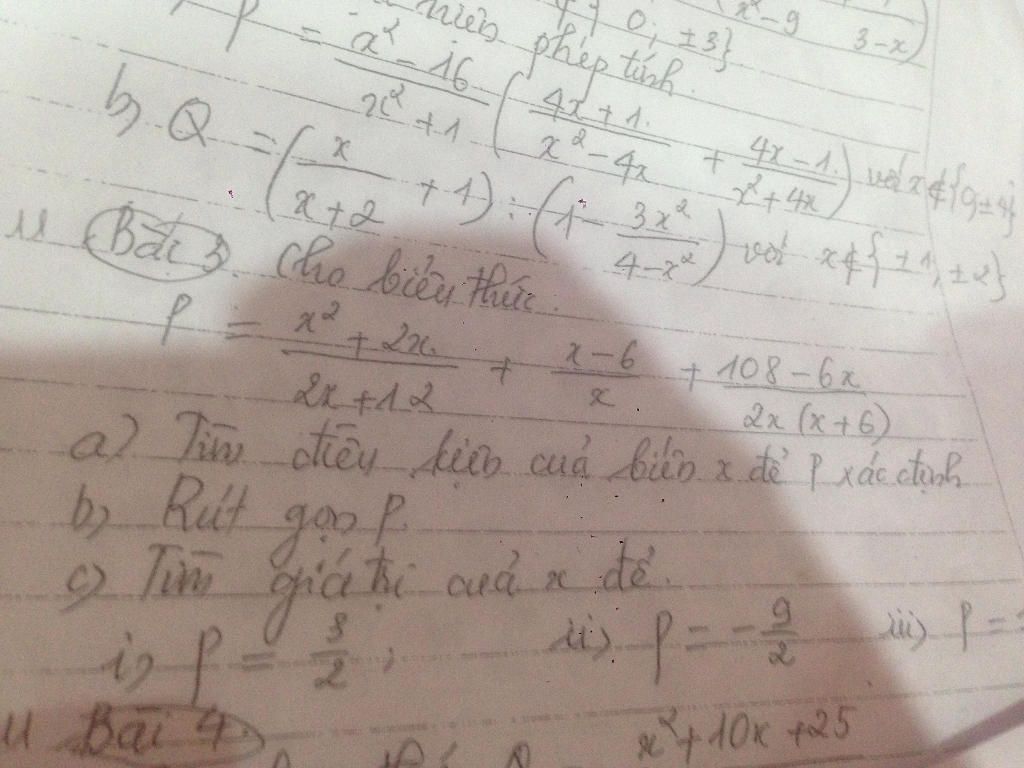 x²-9 3-x)
0; ±3}
phép tính.
P = x²-16 / x²+1 (4x+1 / x²-4x + 4x-1 / x²+4x) với x∉{0;±4}
b, Q = (x / x+2 + 1) : (1 - 3x² / 4-x²) với x∉{±1; ±2}
Bài 3. Cho biểu thức.
P = x²+2x / 2x+12 + x-6 / x + 108-6x / 2x(x+6)
a) Tìm điều kiện của biến x để P xác định
b) Rút gọn P.
c) Tìm giá trị của x để.
i, P = 3/2; ii) P = -9/2 iii) P =
Bài 4.
x²+10x+25